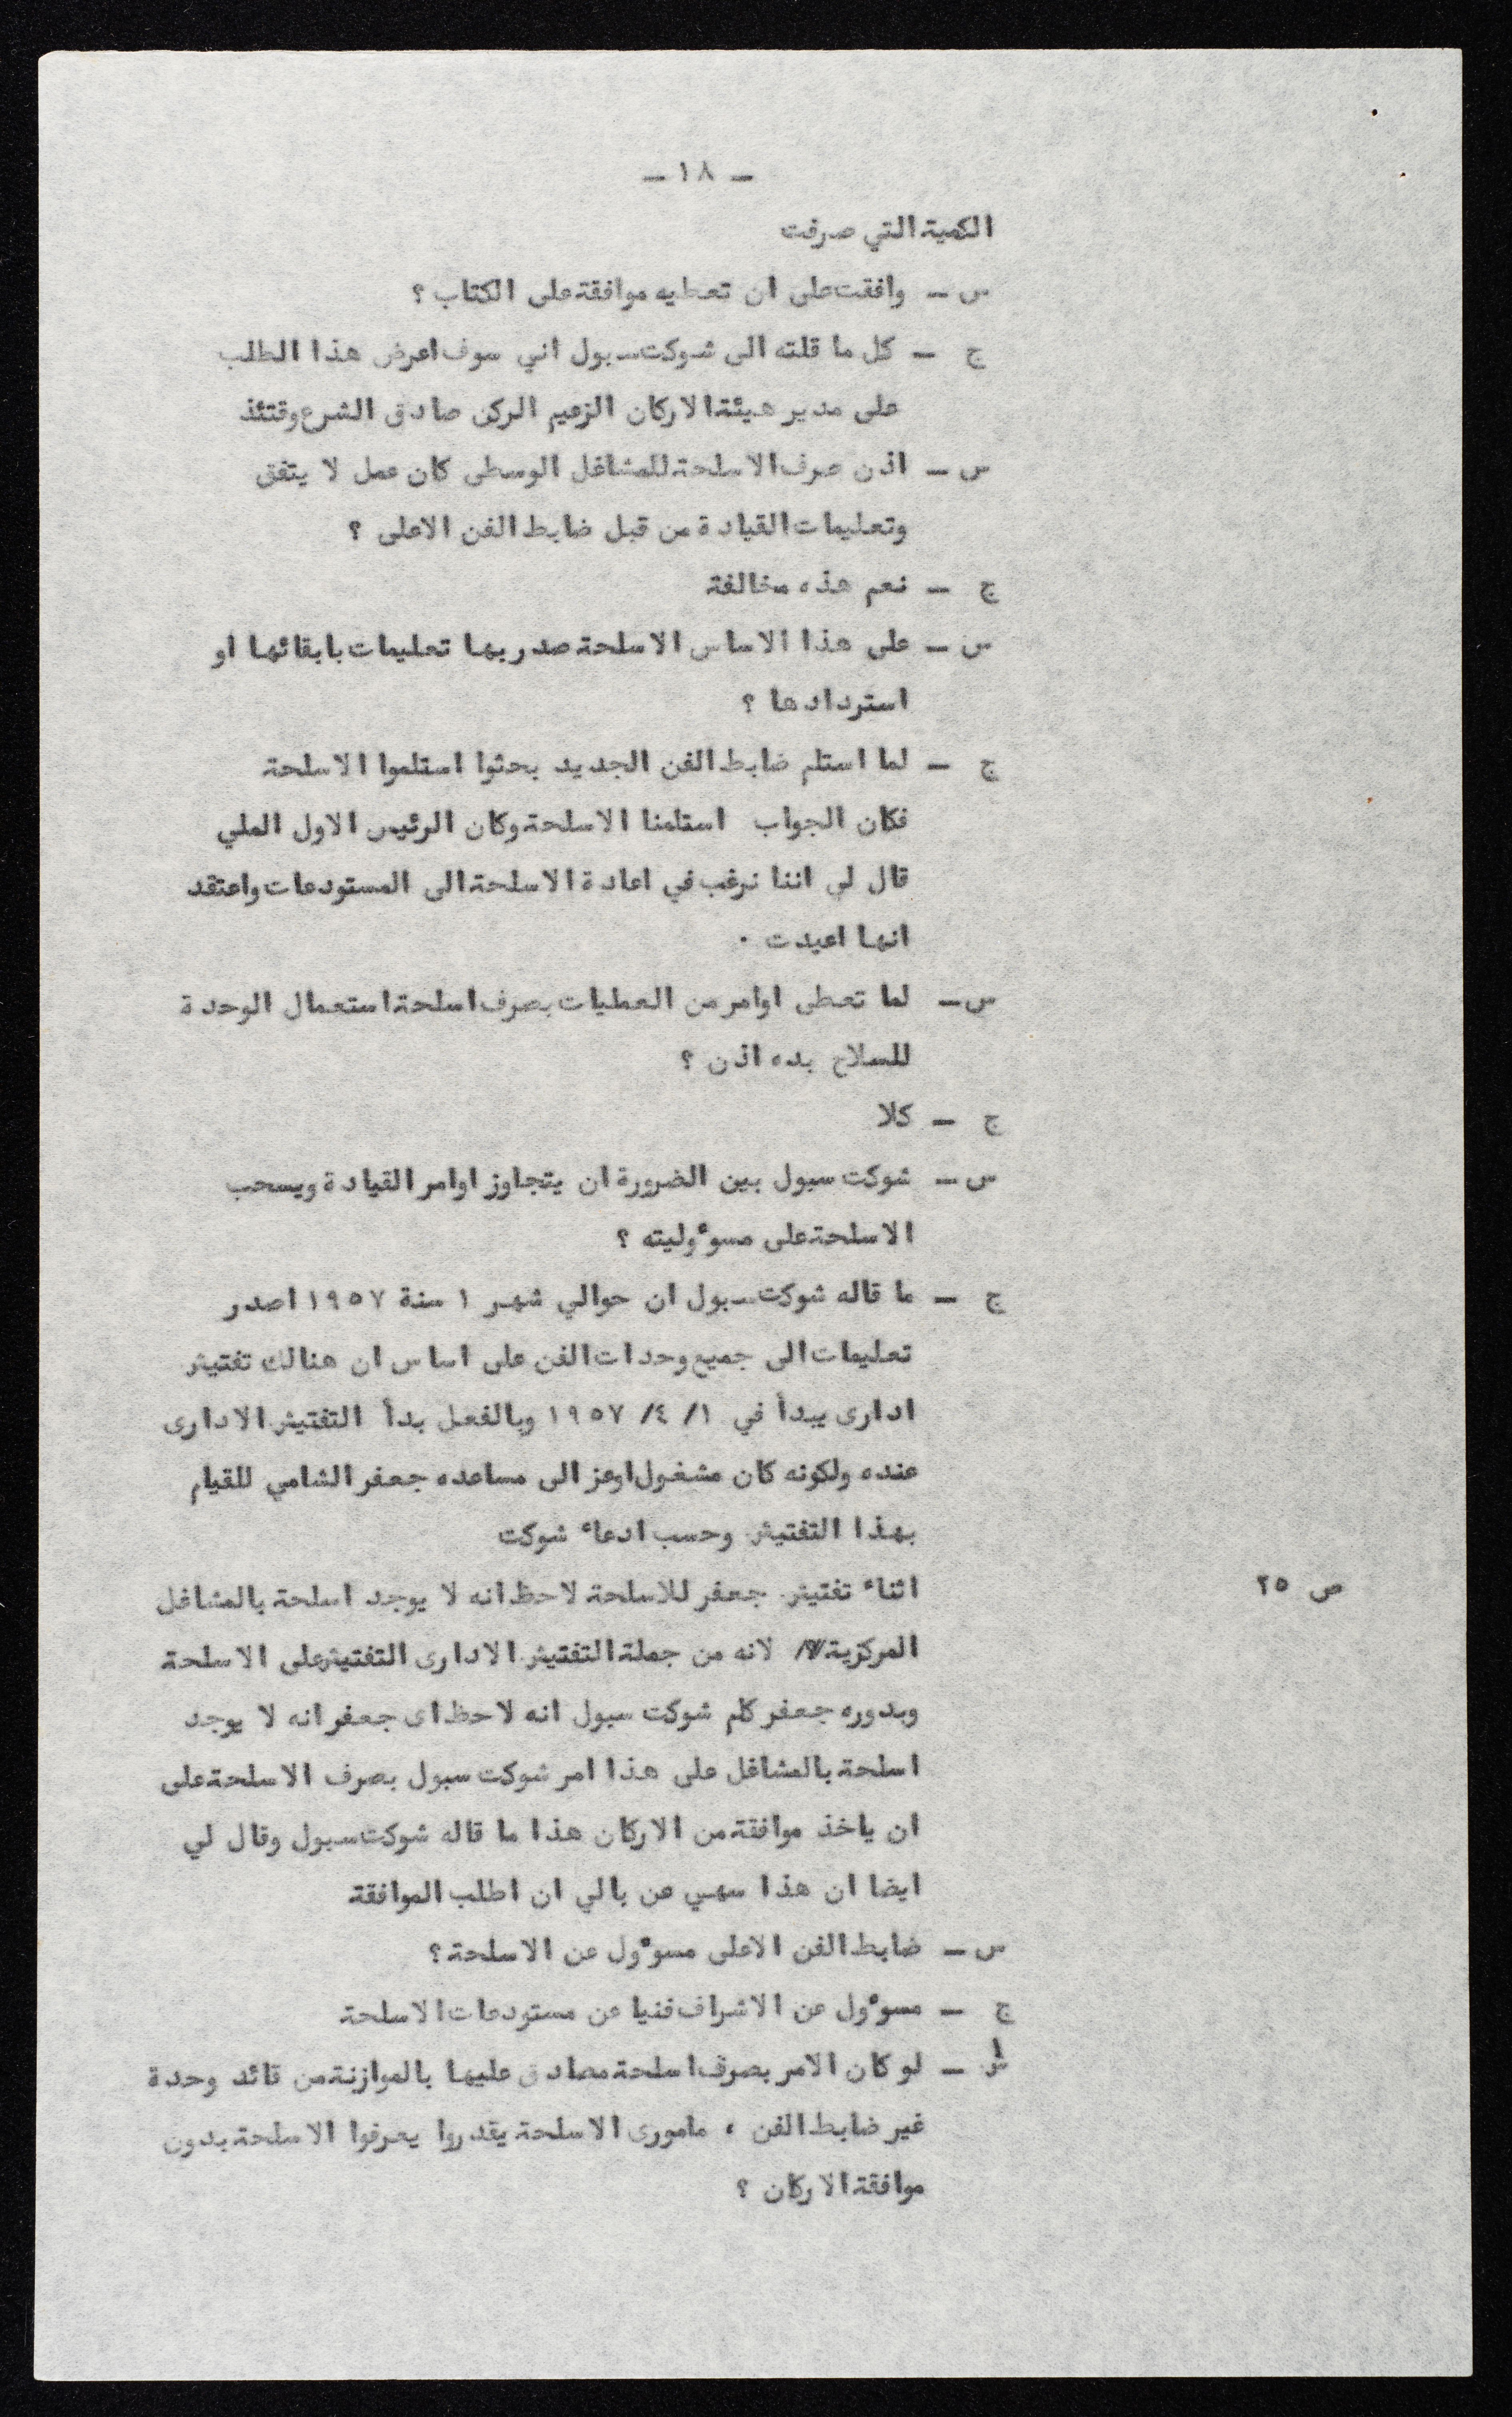 – ١٨ –
الكمية التي صرفت
س – وافقت على ان تعطيه موافقة على الكتاب ؟
ج – كل ما قلته الى شوكت سبول اني سوف اعرض هذا الطلب
على مدير هيئة الاركان الزعيم الركن صادق الشرع وقتئذ
س – اذن صرف الاسلحة للمشاغل الوسطى كان عمل لا يتفق
وتعليمات القيادة من قبل ضابط الفن الاعلى ؟
ج – نعم هذه مخالفة
س – على هذا الاساس الاسلحة صدر بها تعليمات بابقائها او
استردادها ؟
ج – لما استلم ضابط الفن الجديد بحثوا استلموا الاسلحة
فكان الجواب استلمنا الاسلحة وكان الرئيس الاول العلي
قال لي اننا نرغب في اعادة الاسلحة الى المستودعات واعتقد
انها اعيدت .
س – لما تعطى اوامر من العمليات بصرف اسلحة استعمال الوحدة
للسلاح بده اذن ؟
ج – كلا
س – شوكت سبول بين الضرورة ان يتجاوز اوامر القيادة ويسحب
الاسلحة على مسوءوليته ؟
ج – ما قاله شوكت سبول ان حوالي شهر ١ سنة ١٩٥٧ اصدر
تعليمات الى جميع وحدات الفن على اساس ان هنالك تفتيش
ادارى يبدأ في ١/ ٤/ ١٩٥٧ وبالفعل بدأ التفتيش الادارى
عنده ولكونه كان مشغول اوعز الى مساعده جعفر الشامي للقيام
بهذا التفتيش وحسب ادعاء شوكت
ص ٢٥
اثناء تفتيش جعفر للاسلحة لاحظ انه لا يوجد اسلحة بالمشاغل
المركزية لانه من جملة التفتيش الادارى التفتيش على الاسلحة
وبدوره جعفر كلم شوكت سبول انه لاحظ اى جعفر انه لا يوجد
اسلحة بالمشاغل على هذا امر شوكت سبول بصرف الاسلحة على
ان ياخذ موافقة من الاركان هذا ما قاله شوكت سبول وقال لي
ايضا ان هذا سهي عن بالي ان اطلب الموافقة
س – ضابط الفن الاعلى مسوءول عن الاسلحة ؟
ج – مسوءول عن الاشراف فنيا عن مستودعات الاسلحة
س – لو كان الامر بصرف اسلحة مصادق عليها بالموازنة من قائد وحدة
غير ضابط الفن ، مامورى الاسلحة يقدروا يصرفوا الاسلحة بدون
موافقة الاركان ؟